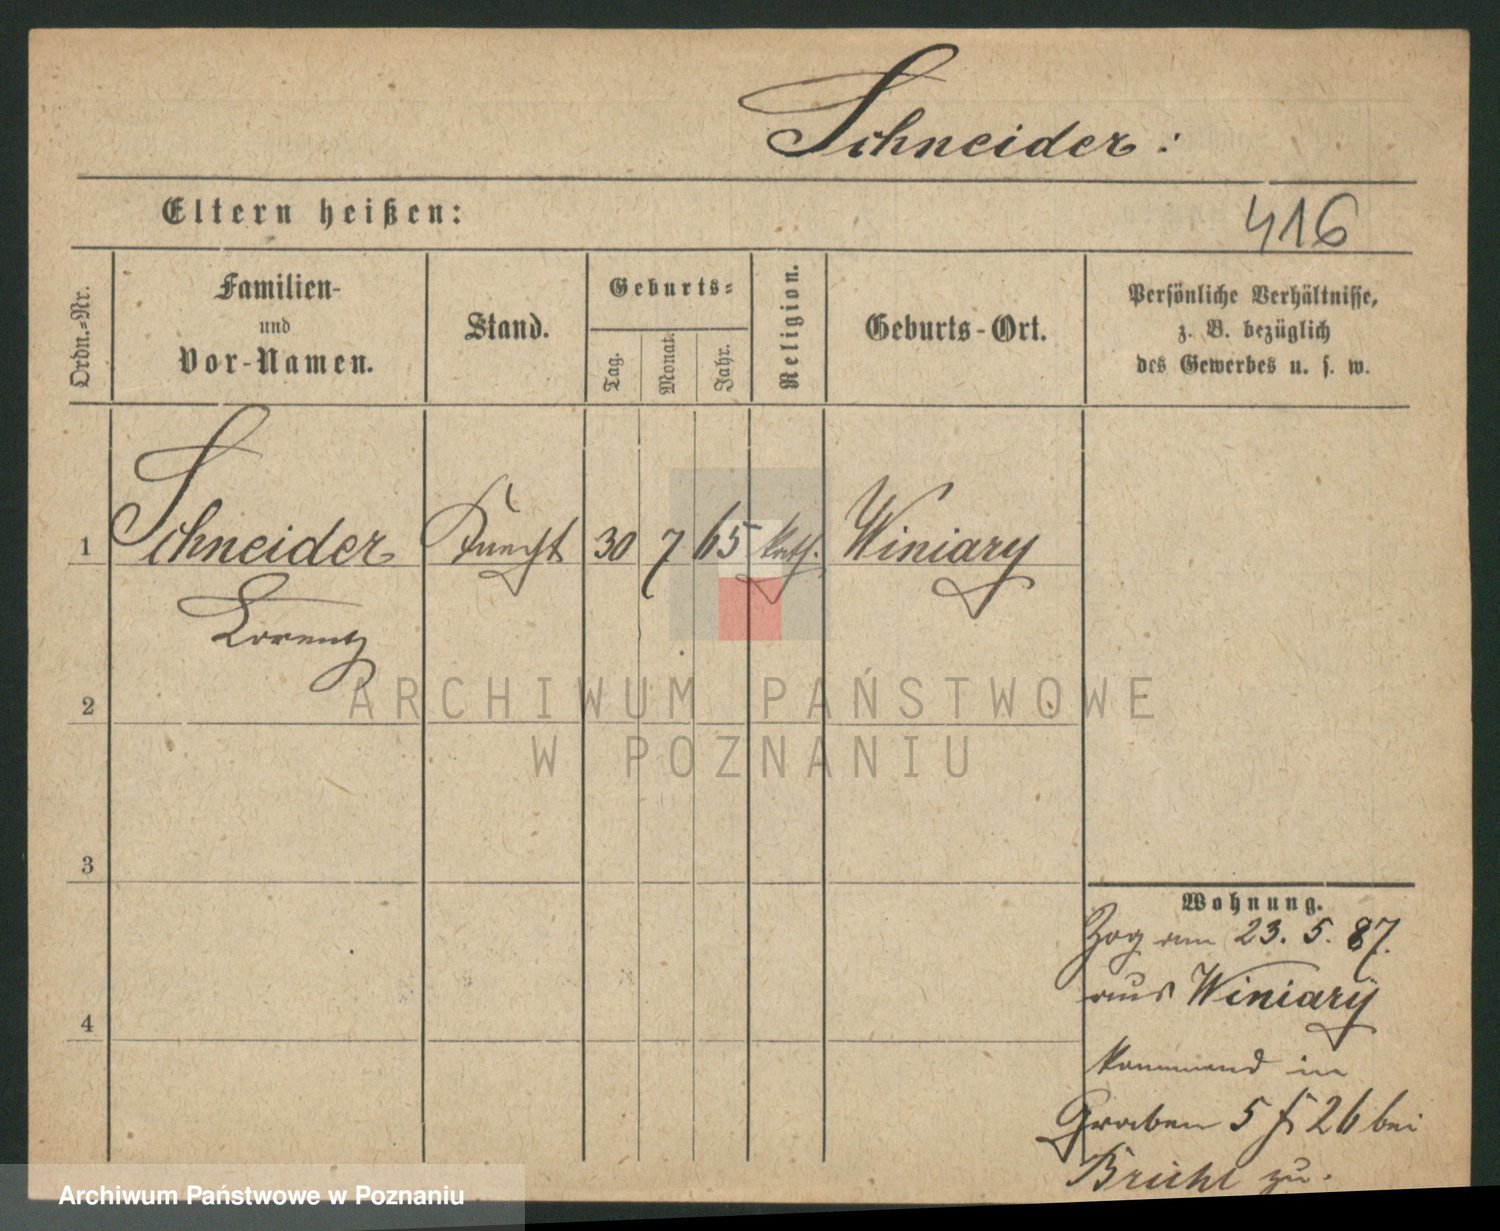 Schneider:
Eltern heißen:
416
Ordn.=Nr.
Familien-
und
Vor-Namen.
Stand.
Geburts=
Tag.
Monat.
Jahr.
Religion.
Geburts-Ort.
Persönliche Verhältnisse,
z. B. bezüglich
des Gewerbes u. s. w.
1 Schneider Knecht 30 7 65 kath. Winiary
Lorentz
2
3
4
Wohnung.
Zog am 23. 5. 87.
aus Winiary
kommend in
Graben 5 26 bei
zu.
ARCHIWUM PAŃSTWOWE
W POZNANIU
Archiwum Państwowe w Poznaniu